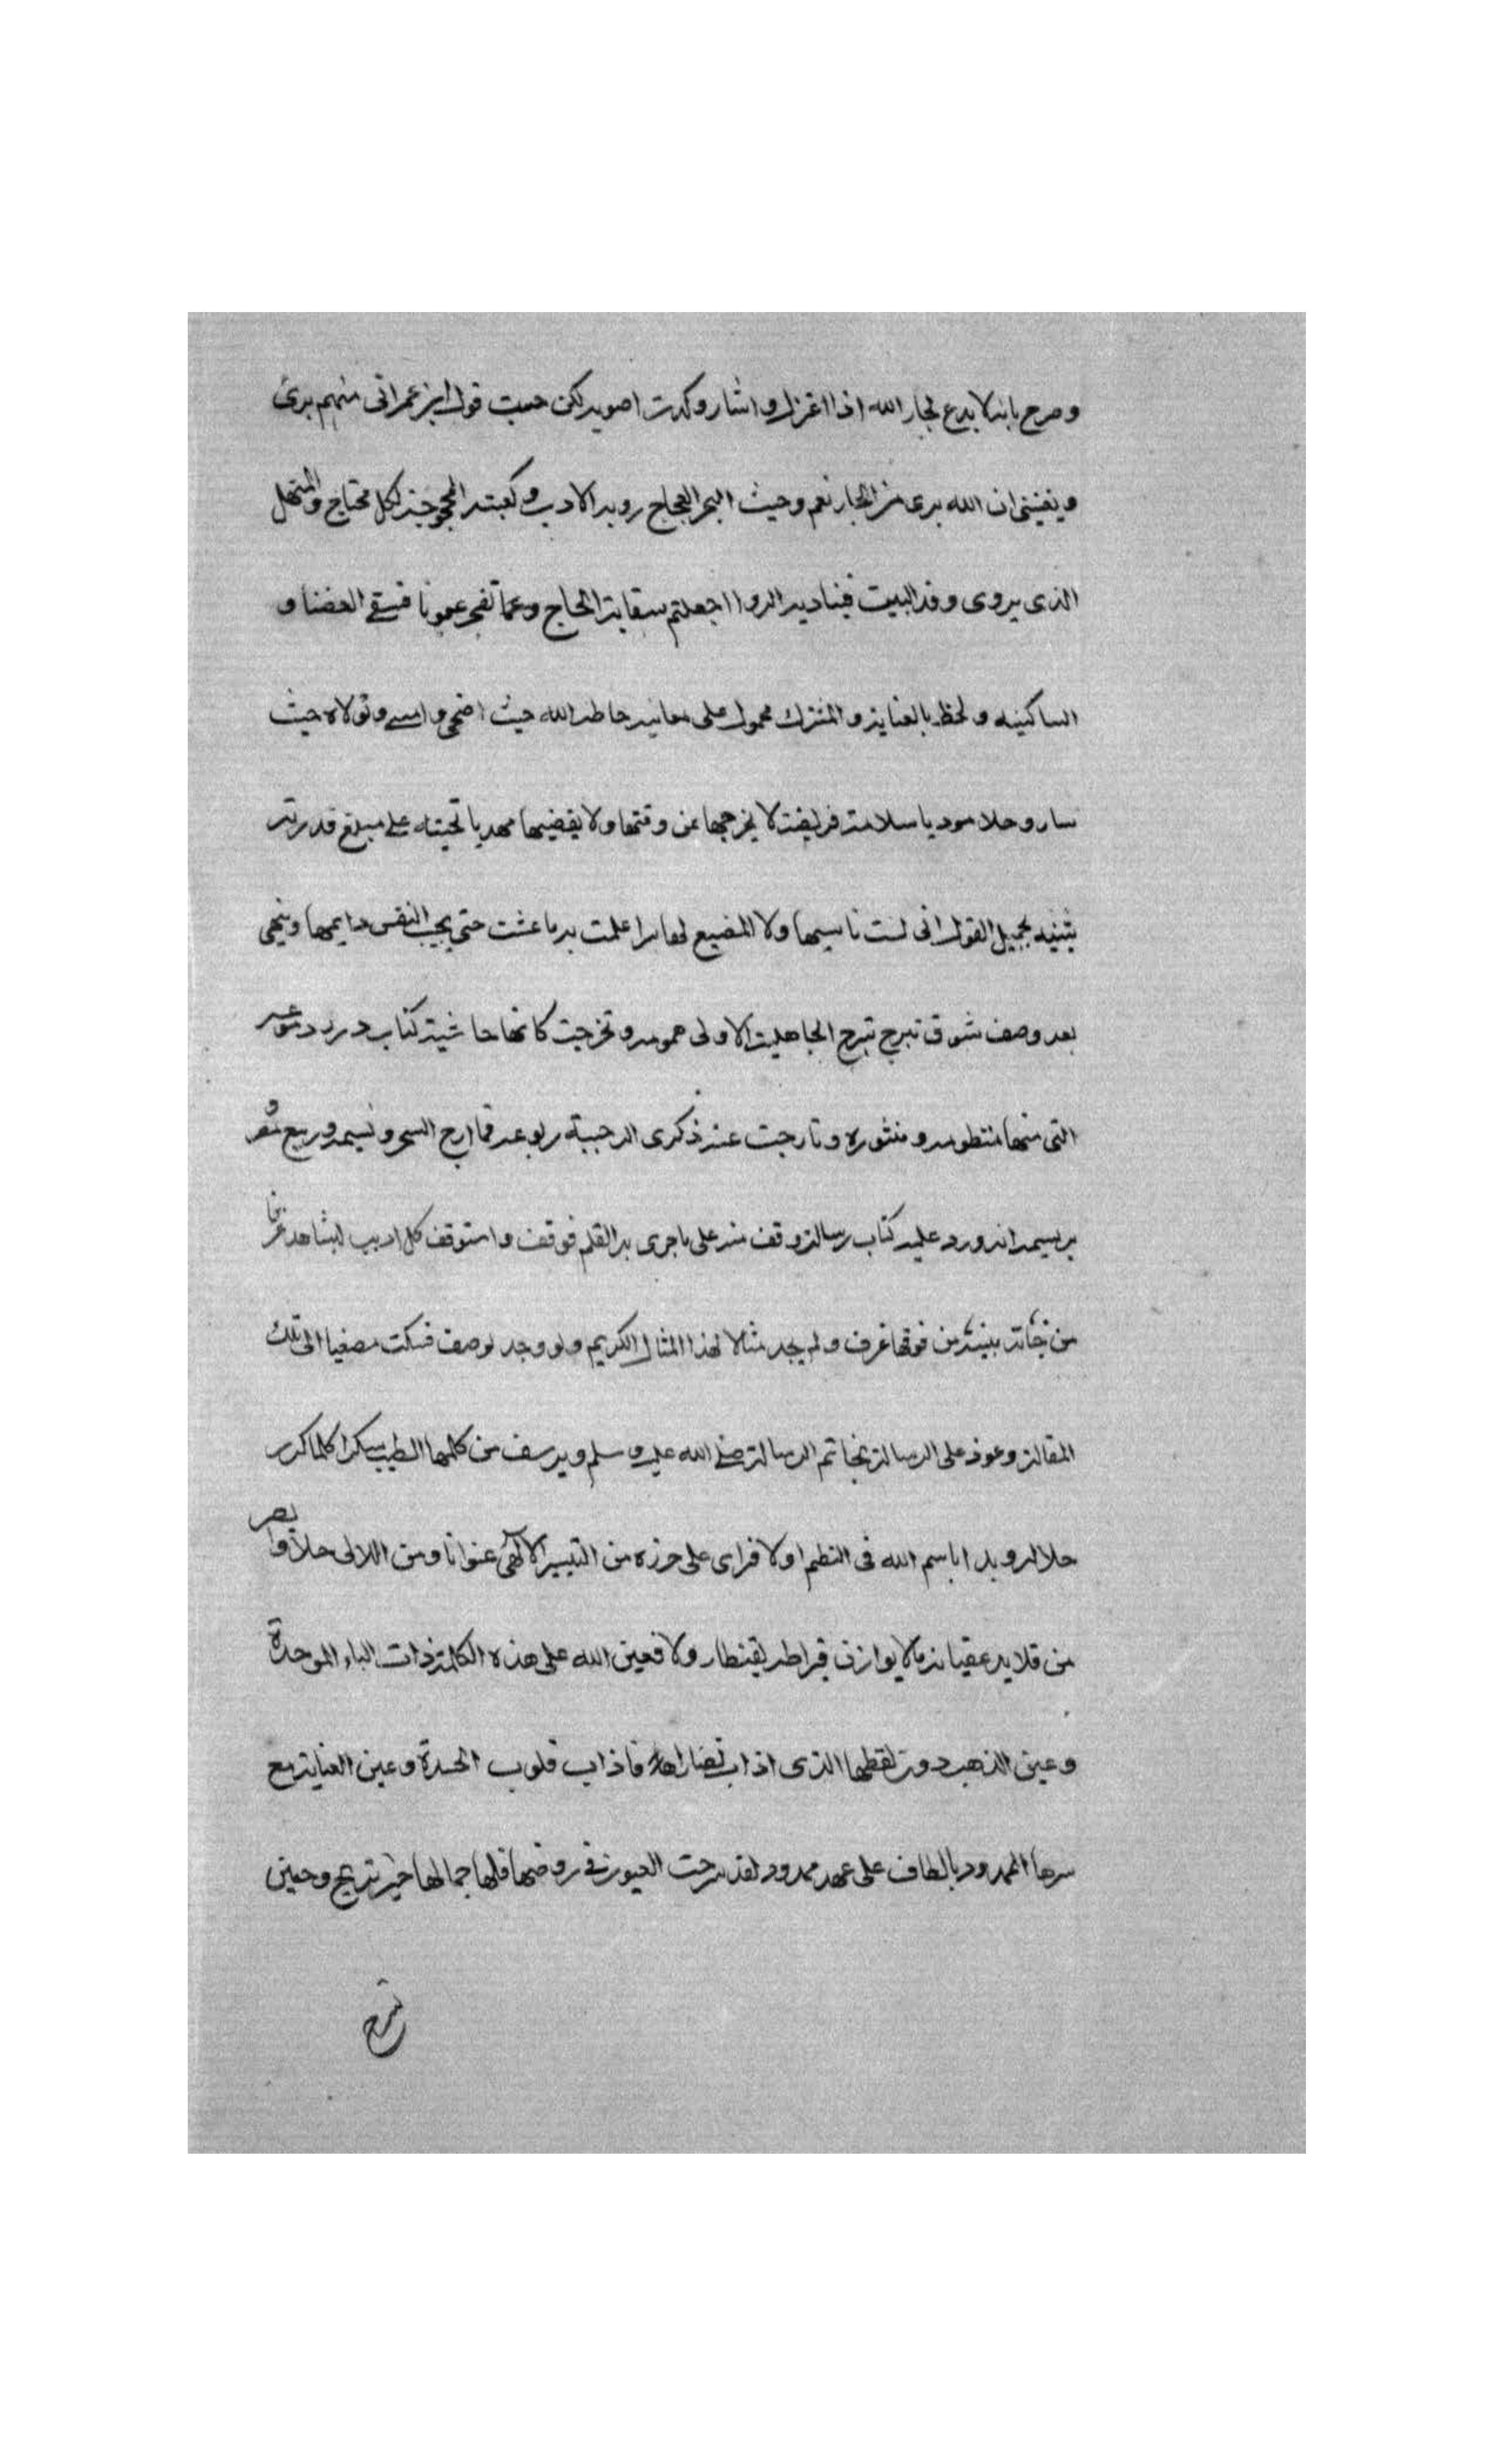 وصرح بانه لا بدع لجار الله اذا اعتزل واشار وكدت اصوبه لكن حسبت قول ابن عمر انى منهم برئ
ويغنينى ان الله برى من الجار نعم وحيث البحر العجاج روبة الادب وكعبته المحجوجة لكل محتاج والمنهل
الذى يروى وفد البيت فيناديه الروا اجعلتم سقاية الحاج وعما تفجر عيونا فسقى الغضا و
الساكنيه ولحظ بالعناية والمشترك محمول على معانيه حاطه الله حيث اضحى وامسى وتولاه حيث
سار وحلا موديا سلامة فريضة لا يخرجها عن وقتها ولا يقضيها مهديا تحيته على مبلغ قدرته
يثنيه بجميل القول انى لست ناسيها ولا المضيع لها سرا علمت به ما عشت حتى يجيب النفس داعيها وينهى
بعد وصف شوق تبرج تبرج الجاهلية الاولى همومه وتخرجت كانها حاشية كتاب درر دموعه
التى منها منظومه ومنثوره وتارجت عند ذكرى الرحبية ربوعه فما ارج السحر ونسيمه وربيع شعر
بريسيمه انه ورد عليه كتاب رسالة وقف منه على ما جرى به القلم فوقف واستوقف كل اديب ليشاهد غرفا
من جناته بينة من فوقها غرف ولم يجد مثالا لهذا المثال الكريم ولو وجد لوصف فسكت مصغيا الى تلك
المقالة وعوذ على الرسالة بخاتم الرسالة صلى الله عليه وسلم ويرشف من كلمها الطيب سكرا كلما كرر
حلا له وبدا باسم الله فى النظم اولا فراى على حرزه من التيسير الالهى عنوانا ومن اللالى حلا وابصر
من قلايد عقيانه ما لا يوازن قيراطه بقنطار ولا فعين الله على هذه الكلمة ذات الباء الموحدة
وعين الذهب دون لفظها الذى اذاب نضارا فاذاب قلوب الحسدة وعين العناية مع
سرها الممدود بالطاف على عهد ممدود لقد سرحت العيون فى روضها فلها جمالها حين تريح وحين
تسرح